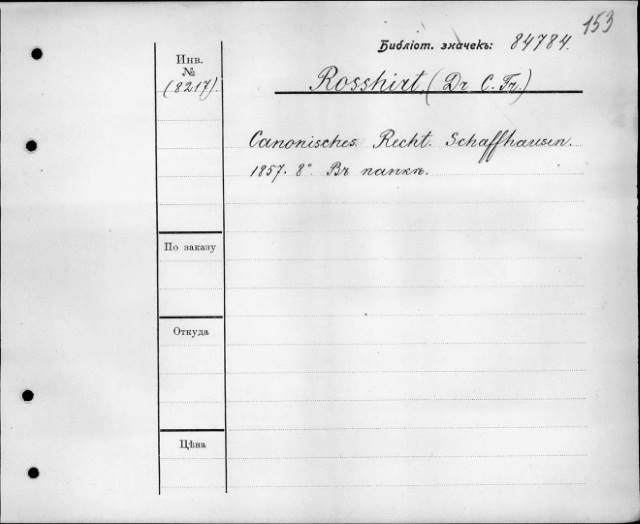 153
Библіот. значекъ: 84784.
Инв.
№
(8217).
Rosshirt, (Dr. C. Fr.)
Canonisches Recht. Schaffhausen.
1857. 8° Въ папкѣ.
По заказу
Откуда
Цѣна